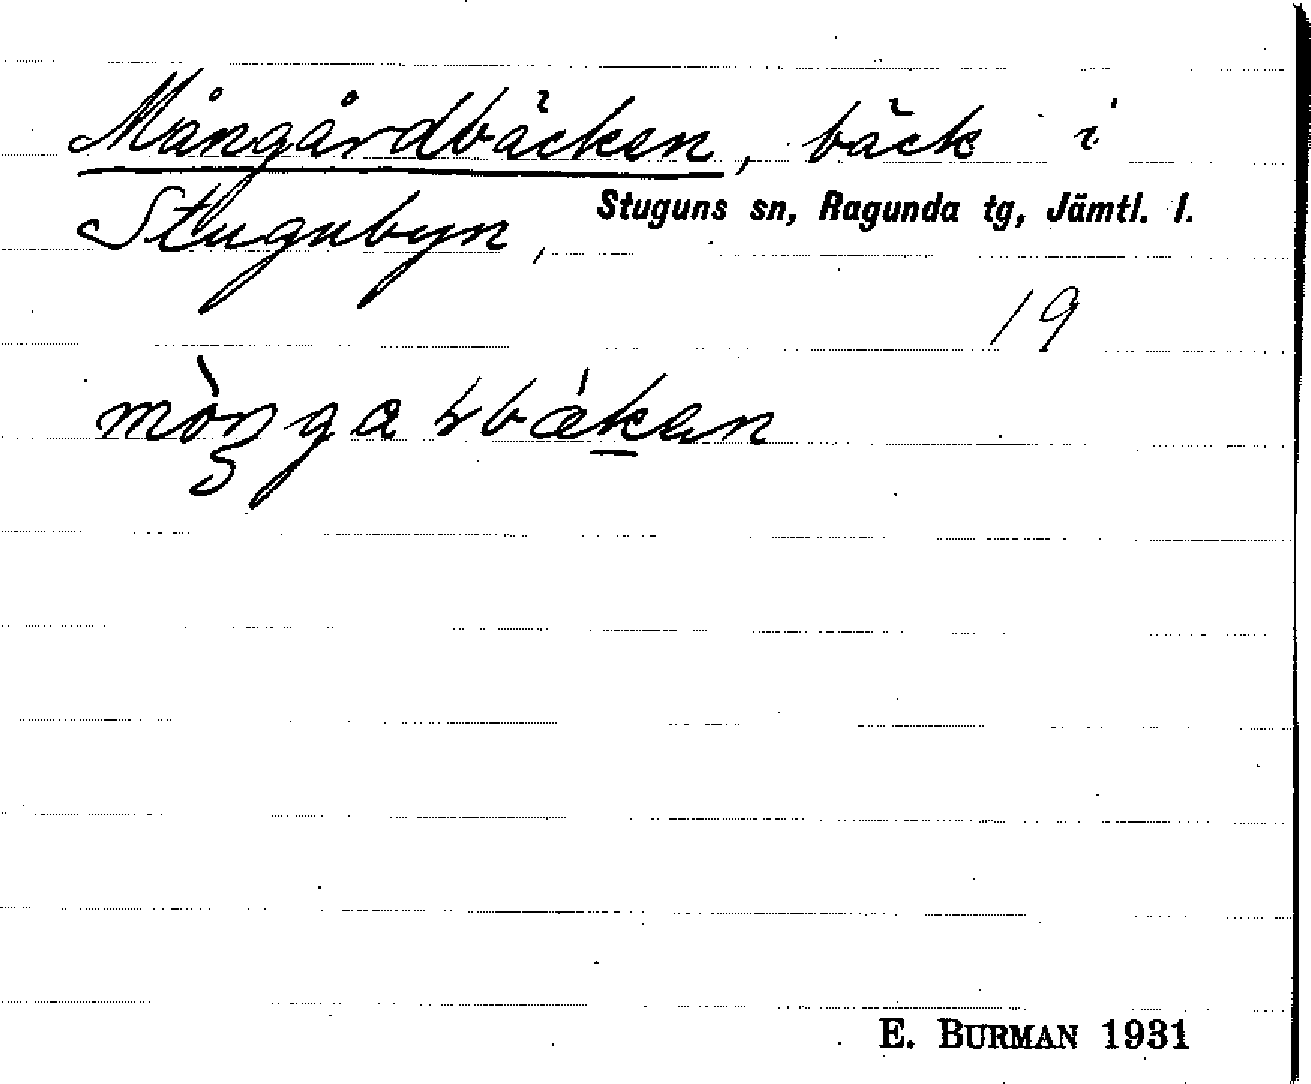 Mångårdbäcken, bäck i
Stugubyn,
Stuguns sn, Ragunda tg, Jämtl. l.
19
E. BURMAN 1931